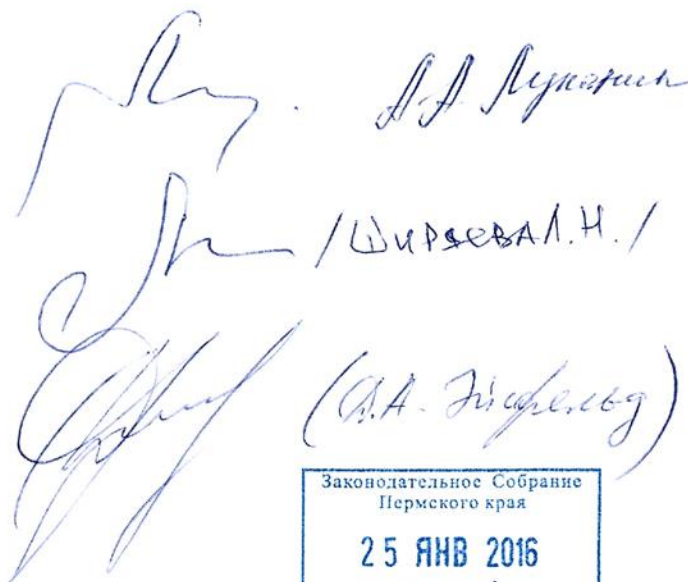 А.А. Луканин
/ШИРЯЕВА Л.Н./
(Д.А. Эйсфельд)
Законодательное Собрание
Пермского края
25 ЯНВ 2016